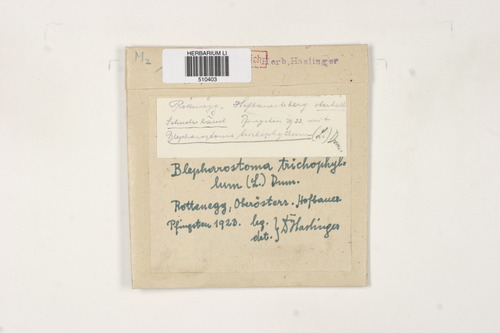 M2
HERBARIUM LI
510403
Herb. Haslinger
Rottenegg, Hofbauer
Pfingsten 1922 mit
Blepharostoma trichophyllum (L.) Dum.
Blepharostoma trichophyl-
lum (L.) Dum.
Rottenegg, Oberösterr. Hofbauer
Pfingsten 1923. leg.
det. } Dr Haslinger